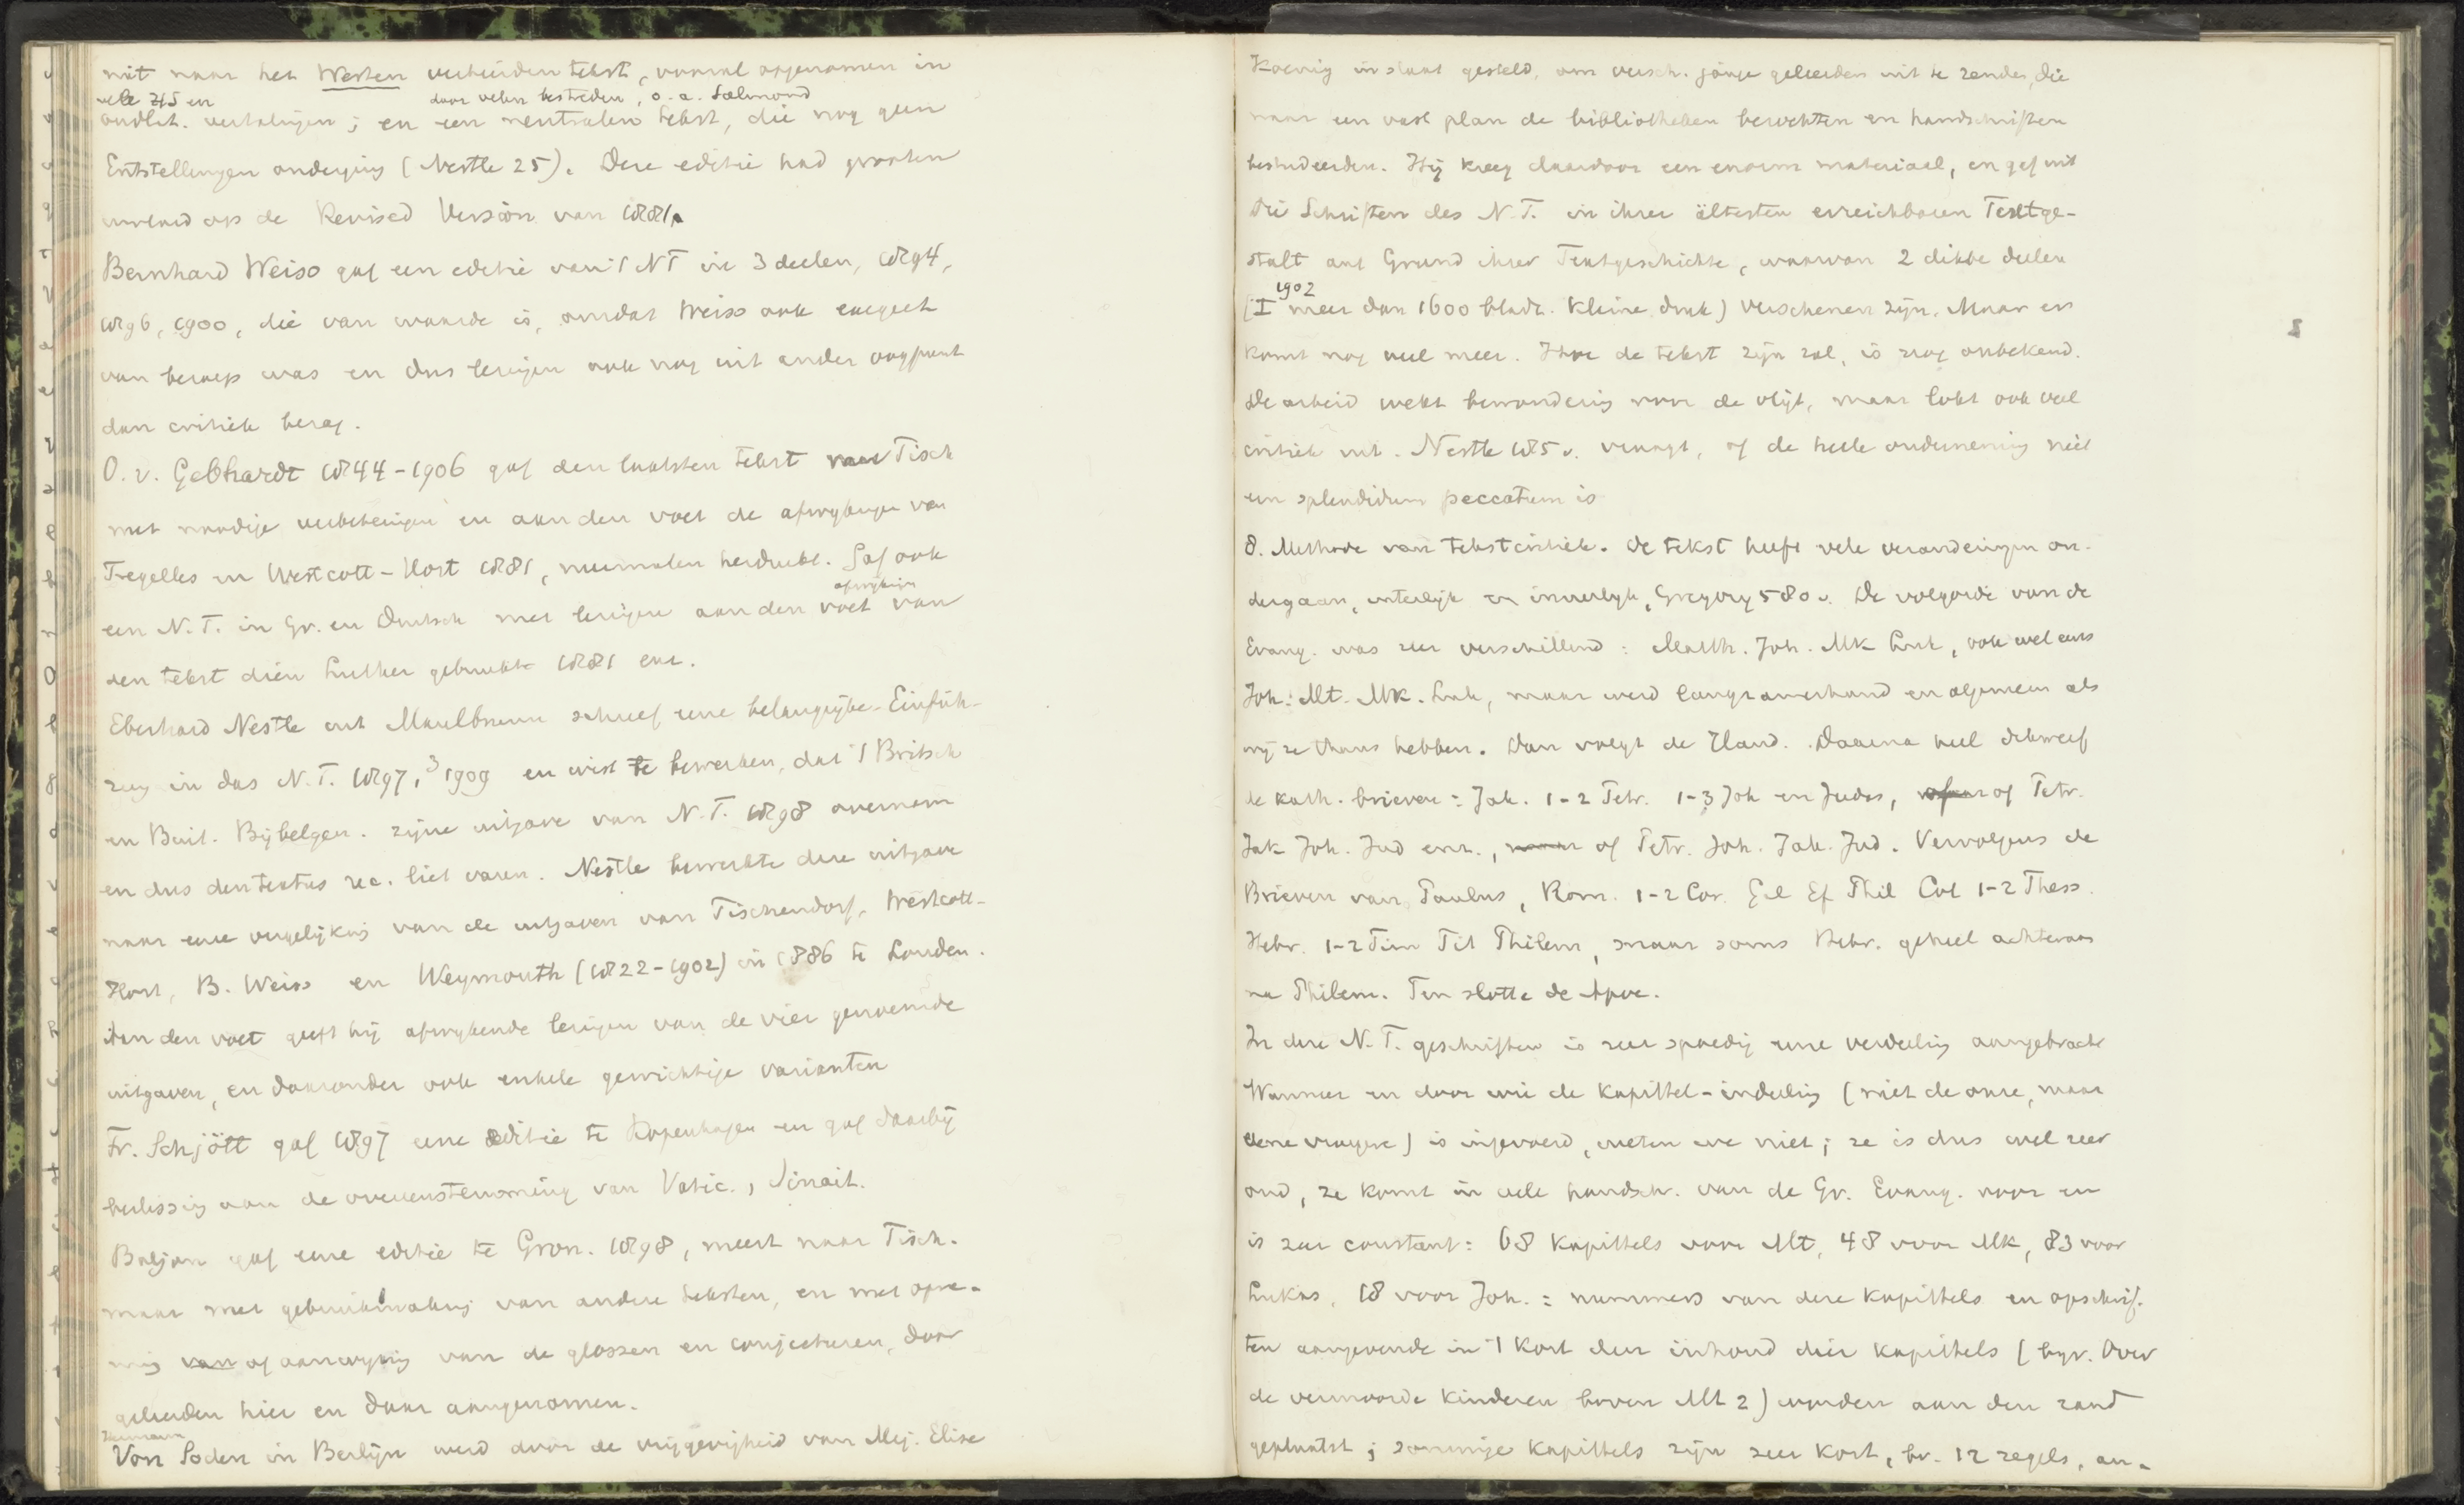 uit naar het Westen verbreiden tekst, vooral opgenomen in
vele HS en door velen bestreden, o. a. Salmond
oudlat. vertalingen; en een neutralen tekst, die nog geen
Entstellungen onderging (Nestle 25). Deze editie had grooten
invloed op de Revised Version van 1881.
Bernhard Weiss gaf een editie van 't NT in 3 deelen, 1894,
1896, 1900, die van waarde is, omdat Weiss ook exegeet
van beroep was en dus lezingen ook nog uit ander oogpunt
dan critiek bezag.
O. v. Gebhardt 1844-1906 gaf den laatsten tekst van Tisch
met noodige verbeteringen en aan den voet de afwijkingen van
Tregelles en Westcott-Hort 1881, meermalen herdrukt. Gaf ook
een N. T. in Gr. en Duitsch met lezingen aan den voet afwijkingen van
den tekst dien Luther gebruikte 1881 enz.
Eberhard Nestle uit Maulbronn schreef eene belangrijke Einfüh-
rung in das N. T. 1897, ³1909 en wist te bewerken, dat 't Britsch
en Buit. Bijbelgen. zijne uitgave van N. T. 1898 overnam
en dus den textus rec. liet varen. Nestle bewerkte deze uitgave
naar eene vergelijking van de uitgaven van Tischendorf, Westcott-
Hort, B. Weiss en Weymouth (1822-1902) in 1886 te Londen.
Aan den voet geeft hij afwijkende lezingen van de vier genoemde
uitgaven, en daaronder ook enkele gewichtige varianten
Fr. Schjött gaf 1897 eene editie te Kopenhagen en gaf daarbij
beslissing aan de overeenstemming van Vatic., Sinait.
Baljon gaf eene editie te Gron. 1898, meest naar Tisch.
maar met gebruikmaking van andere teksten, en met opne-
ming van of aanwijzing van de glossen en conjecturen, door
geleerden hier en daar aangenomen.
Hermann
Von Soden in Berlijn werd door de vrijgevigheid van Mej. Elise
Koenig in staat gesteld, om versch. jonge geleerden uit te zenden, die
naar een vast plan de bibliotheken bezochten en handschriften
bestudeerden. Hij kreeg daardoor een enorm materiaal, en gaf uit
Die Schriften des N. T. in ihrer ältesten erreichbaren Textge-
stalt auf Grund ihrer Textgeschichte, waarvan 2 dikke deelen
(I 1902 meer dan 1600 bladz. kleine druk) verschenen zijn. Maar er
komt nog veel meer. Hoe de tekst zijn zal, is nog onbekend.
De arbeid wekt bewondering voor de vlijt, maar lokt ook veel
critiek uit. Nestle 185 v. vraagt, of de heele onderneming niet
een splendidum peccatum is
8. Methode van tekstcritiek. De tekst heeft vele veranderingen on-
dergaan, uiterlijk en innerlijk, Gregory 580 v. De volgorde van de
Evang. was zeer verschillend: Matth. Joh. Mk Luk, ook wel eens
Joh. Mt. Mk. Luk, maar werd langzamerhand en algemeen als
wij ze thans hebben. Dan volgt de Hand. Daarna heel dikwerf
de kath. brieven: Jak. 1-2 Petr. 1-3 Joh en Judas, of Petr.
Jak Joh. Jud enz., maar of Petr. Joh. Jak. Jud. Vervolgens de
Brieven van Paulus, Rom. 1-2 Cor. Gal Ef Phil Col 1-2 Thess.
Hebr. 1-2 Tim Tit Philem, maar soms Hebr. geheel achteraan
na Philem. Ten slotte de Apoc.
In deze N. T. geschriften is zeer spoedig eene verdeeling aangebracht
Wanneer en door wie de kapittel-indeeling (niet de onze, maar
eene vroegere) is ingevoerd, weten we niet; ze is dus wel zeer
oud, ze komt in vele handschr. van de Gr. Evang. voor en
is zeer constant: 68 kapittels voor Mt, 48 voor Mk, 83 voor
Lukas, 18 voor Joh.: nummers van deze kapittels en opschrif-
ten aangevende in 't kort den inhoud dier kapittels (bijv. Over
de vermoorde kinderen boven Mt 2) worden aan den rand
geplaatst; sommige kapittels zijn zeer kort, bv. 12 regels, an-